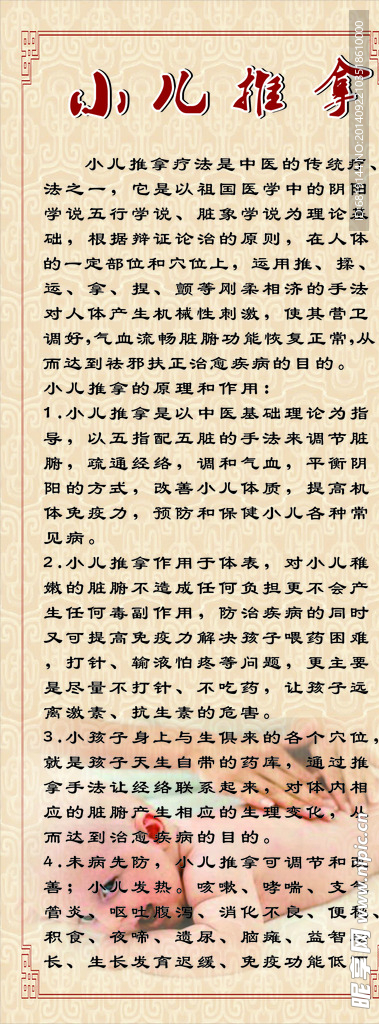 小儿推拿
小儿推拿疗法是中医的传统疗、
法之一，它是以祖国医学中的阴阳
学说五行学说、脏象学说为理论基
础，根据辩证论治的原则，在人体
的一定部位和穴位上，运用推、揉、
运、拿、捏、颤等刚柔相济的手法
对人体产生机械性刺激，使其营卫
调好,气血流畅脏腑功能恢复正常,从
而达到祛邪扶正治愈疾病的目的。
小儿推拿的原理和作用：
1.小儿推拿是以中医基础理论为指
导，以五指配五脏的手法来调节脏
腑，疏通经络，调和气血，平衡阴
阳的方式，改善小儿体质，提高机
体免疫力，预防和保健小儿各种常
见病。
2.小儿推拿作用于体表，对小儿稚
嫩的脏腑不造成任何负担更不会产
生任何毒副作用，防治疾病的同时
又可提高免疫力解决孩子喂药困难
，打针、输液怕疼等问题，更主要
是尽量不打针、不吃药，让孩子远
离激素、抗生素的危害。
3.小孩子身上与生俱来的各个穴位，
就是孩子天生自带的药库，通过推
拿手法让经络联系起来，对体内相
应的脏腑产生相应的生理变化，从
而达到治愈疾病的目的。
4.未病先防，小儿推拿可调节和改
善；小儿发热。咳嗽、哮喘、支气
管炎、呕吐腹泻、消化不良、便秘、
积食、夜啼、遗尿、脑瘫、益智
长、生长发育迟缓、免疫功能低
昵享网 www.nipic.cn